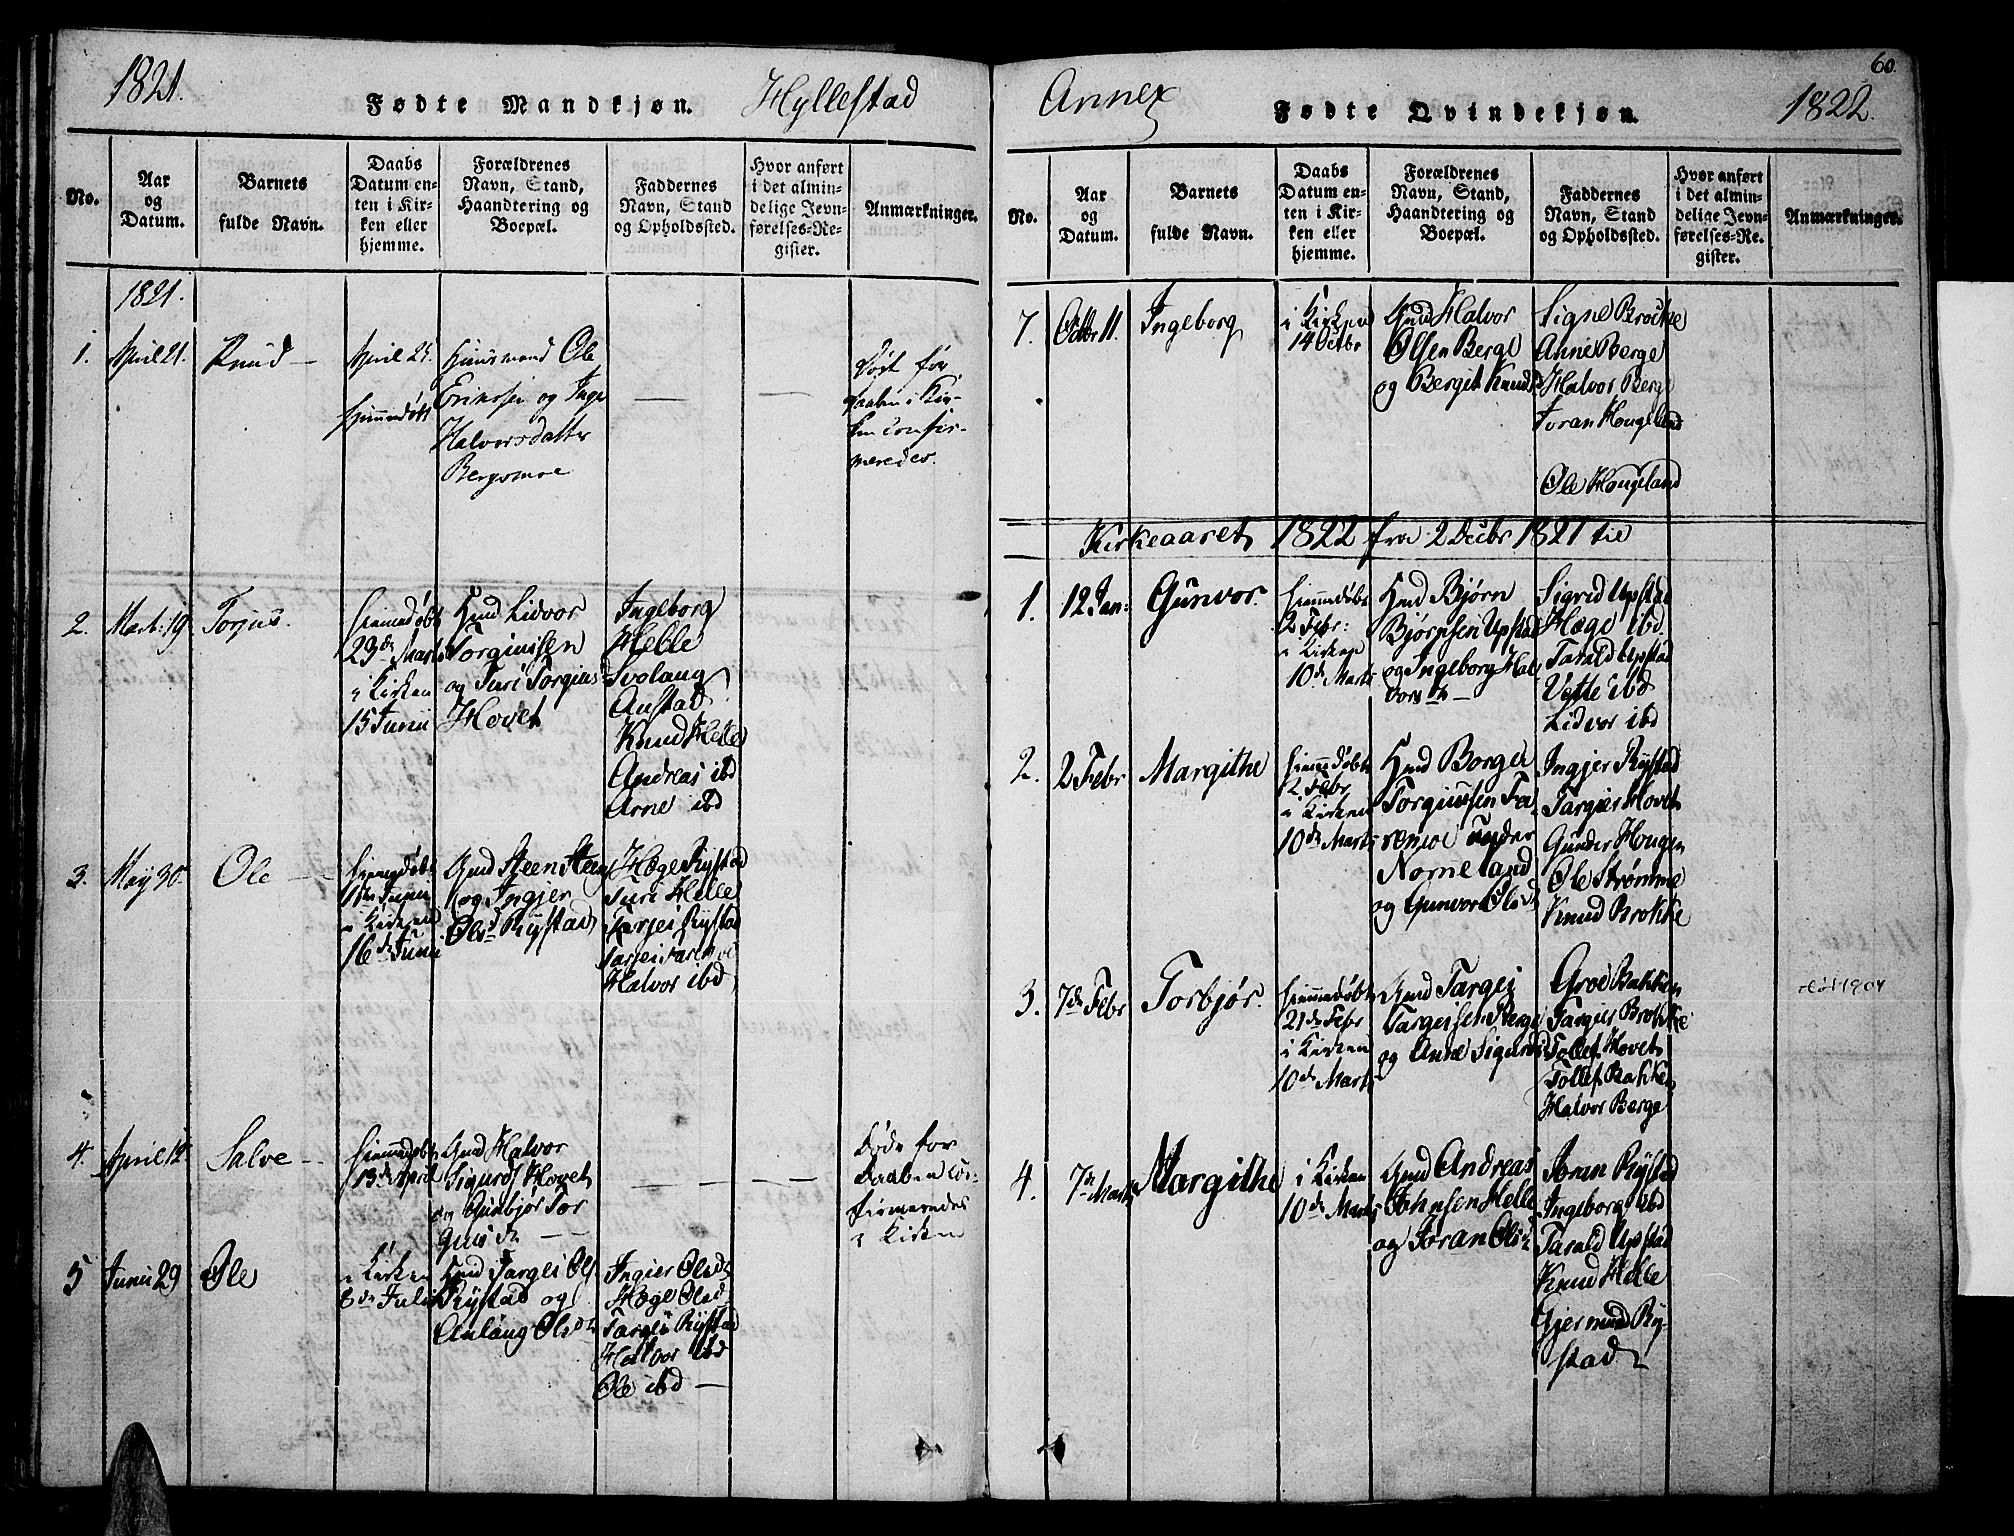 1821.
Fødte Mandkjøn.
Hyllestad
No.
Aar
og
Datum.
Barnets
fulde Navn.
Daabs
Datum en-
ten i Kir-
ken eller
hjemme.
Forældrenes
Navn, Stand,
Haandtering og
Boepæl.
Faddernes
Navn, Stand
og Opholdssted.
Hvor anført
i det almin-
delige Jevn-
førelses-Re-
gister.
Anmærkninger.
1821.
1.
April 21.
Knud
April 25.
hiemmedøbt
Huusmand Ole
Erikssen og Inge
Halvorsdatter
Bergsmoe
Død før
Daaben i Kir-
ken confir-
meredes.
2.
Mart. 19.
Torjus.
hiemmedøbt
23de Marts
i Kirken
15 Junii
Gmd Lidvor
Torgiussen
og Turi Torgius
Hovet
Ingeborg
Helle
Svolaug
Austad
Knud Helle
Andreas ibd
Arne ibd
3.
May 30.
Ole
hiemmedøbt
1de Junii
i Kirken
16de Junii
Gmd Steen Steens
og Ingjer
Olsd Rÿstad
Hæge Rÿstad
Turi Helle
Torjei Rÿstad
Halvor ibd
4.
April 12.
Salve
hiemmedøbt
13de April
Gmd Halvor
Sigurds Hovet
og Gunbjør Tor
giusdr
Døde før
Daaben con-
firmeredes
i Kirken
5
Junii 29
Ole
i Kirken
8de Julii
Gmd Targei Ols
Rÿstad og
Anlaug Olsdr
Ingier Olsdr
Hæge Olsd
Targei Rÿstad
Halvor ibd
Ole ibd
60.
Annex
Fødte Qvindekjøn.
1822.
No.
Aar
og
Datum.
Barnets
fulde Navn.
Daabs
Datum en-
ten i Kir-
ken eller
hjemme.
Forældrenes
Navn, Stand,
Haandtering og
Boepæl.
Faddernes
Navn, Stand
og Opholdssted.
Hvor anført
i det almin-
delige Jevn-
førelses-Re-
gister.
Anmærkninger.
7.
Octbr 11.
Ingeborg
i Kirken
14 Octbr
Gmd Halvor
Olsen Berge
og Bergit Knuds
Signe Brocke
Anne Berge
Halvor Berge
Joran Hougeland
Ole Hougeland
Kirkeaaret 1822 fra 2 Decbr 1821 til
1.
12 Jan:
Gunvor.
hiemmedøbt
2 Febr:
i Kirken
10de Marts
Gmd Bjørn
Bjørnsen Upstad
og Ingeborg Hal
vorsdr
Sigrid Upstad
Hæge ibd
Tarald Upstad
Vetle ibd
Lidvor ibd
2.
2 Febr
Margithe
hiemmedøbt
12 Febr
i Kirken
10de Marts
Gmd Borger
Torgiussen Fa
renæe under
Nomeland
og Gunvor Olsd
Ingjer Rÿstad
Targier Hovet
Gunder Hougen
Ole Strømme
Knud Brokke
3.
7de Febr
Torbjør.
hiemmedøbt
21de Febr
i Kirken
10de Marts
Gmd Targej
Targeissen Berge
og Anne Sigurds
Groe Bakken
Targier Brokke
Tollef Hovet
Tollef Bakken
Halvor Berge
4.
7de Marts
Margithe
i Kirken
10de Marts
Gmd Andreas
Johnsen Helle
og Joran Olsdr
Joran Rÿstad
Ingeborg ibd
Tarald Upstad
Knud Helle
Gjermund Rÿ-
stad